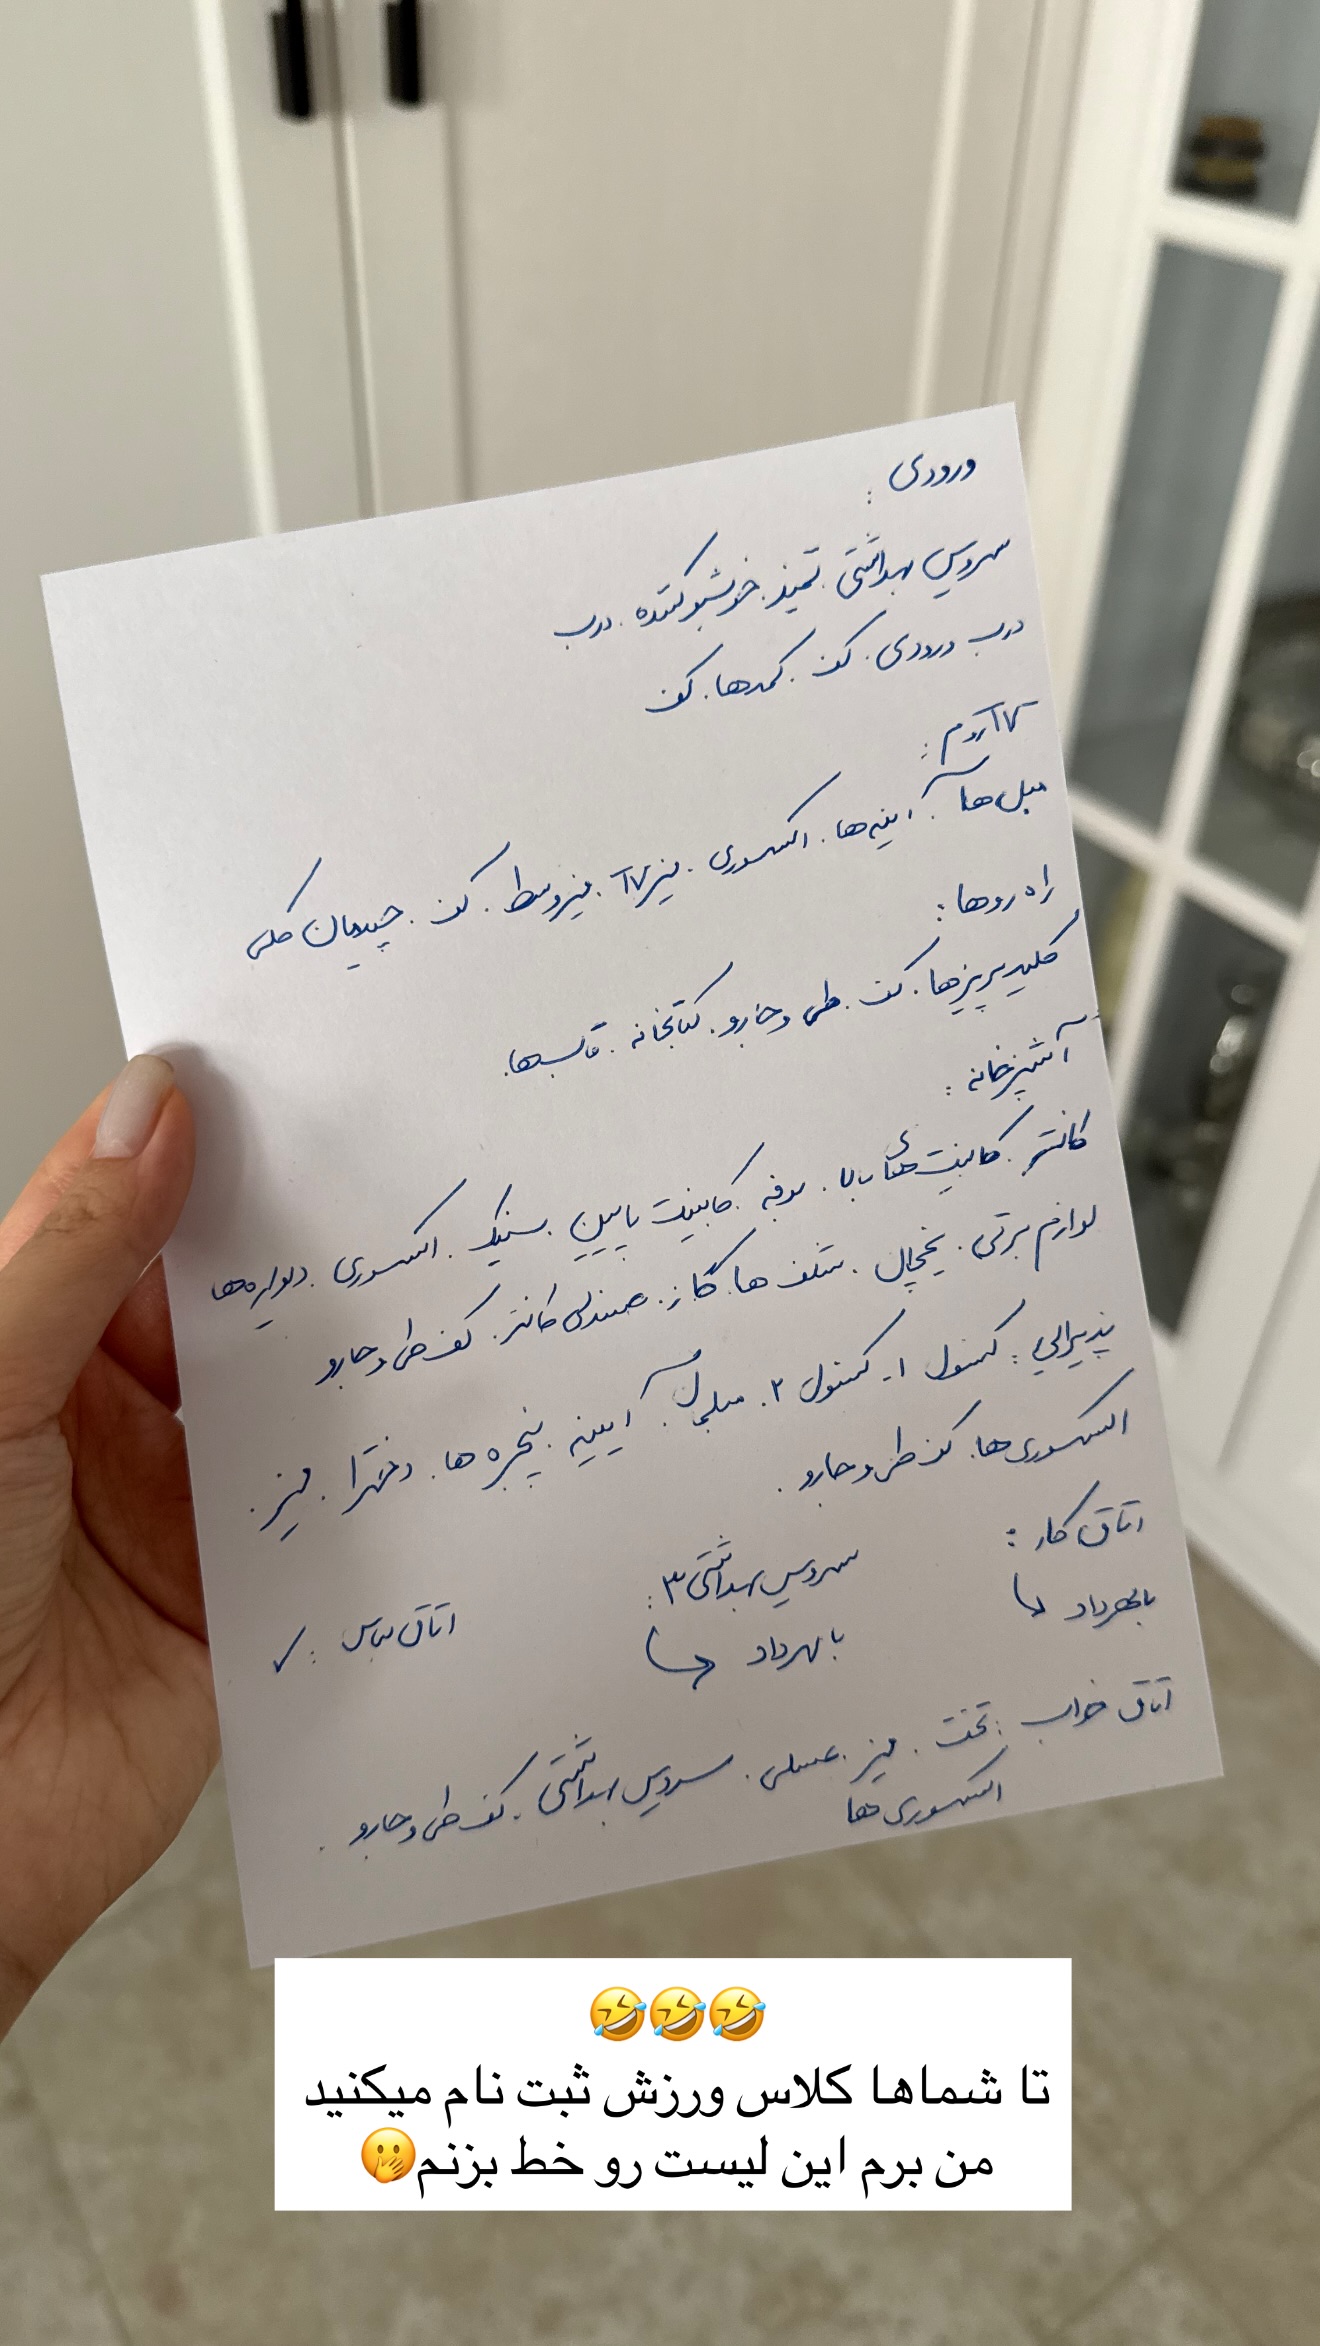 ورودی :
سرویس بهداشتی تمیز. خوشبو کننده. درب
درب ورودی. کف. کمدها. کف
TV روم :
مبل‌ها. آینه‌ها. اکسسوری. میز TV. میز وسط. کف. چیدمان کلی
راه روها :
کلید پریزها. کف. طی و جارو. کتابخانه. قاب‌ها.
آشپزخانه :
کانتر. کابینت‌های بالا. بوفه. کابینت پایین. سینک. اکسسوری. دیواره‌ها
لوازم برقی. یخچال. شلف ها. گاز. صندلی کانتر. کف طی و جارو
پذیرایی : کنسول ۱. کنسول ۲. مبلمان. آیینه. پنجره ها. میز.
اکسسوری‌ها. کف طی و جارو.
اتاق کار :
با مهرداد
سرویس بهداشتی ۳ :
با مهرداد
اتاق لباس : ✓
اتاق خواب : تخت. میز. عسلی. سرویس بهداشتی. کف طی و جارو.
اکسسوری ها
🤣🤣🤣
تا شماها کلاس ورزش ثبت نام میکنید
من برم این لیست رو خط بزنم🤭